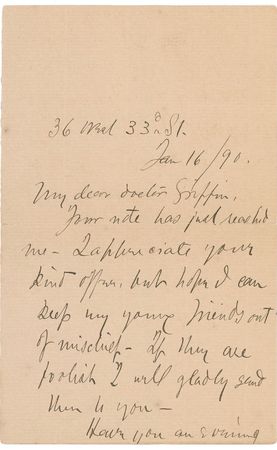 36 West 33rd St.
Jan 16/90.
My dear doctor Griffin,
Your note has just reached
me - I appreciate your
kind offer, but hope I can
keep my young friends out
of mischief - If they are
foolish I will gladly send
them to you -
Have you an evening